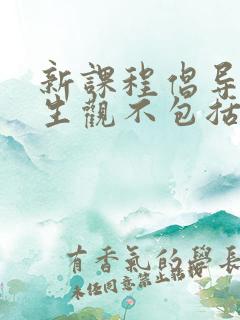 新課程倡导
生觀不包括
有香氣的學長
未经同意禁止转载